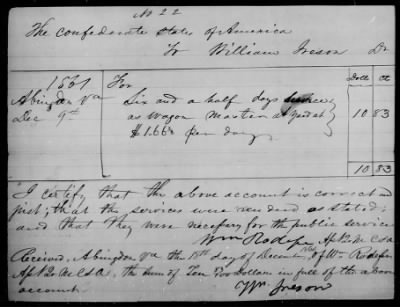 No 22
The Confederate States of America
To William Ireson Dr
Doll Ct
1861 For
Abingdon Va Six and a half days service
Dec 9th as Wagon Master at
$1.66⅔ per day 10 83
10 83
I certify that the above account is correct and
just; that the services were rendered as stated;
and that they were necessary for the public service
Wm Rodefer A.Q.M. CSA
Received, Abingdon Va the 18th day of December 1861, of Wm Rodefer
A.Q.M. CSA, the sum of Ten Dollars in full of the above
account
Wm Ireson